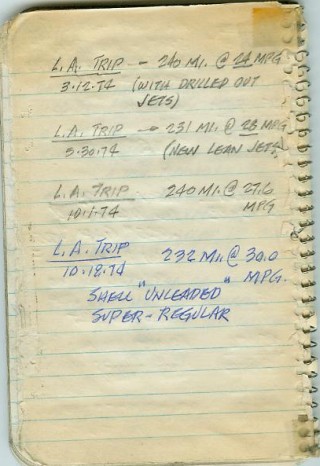 L.A. TRIP - 240 MI. @ 24 MPG
3.12.74 (WITH DRILLED OUT
JETS)
L.A. TRIP - 231 MI. @ 28 MPG
5.30.74 (NEW LEAN JETS)
L.A. TRIP 240 MI. @ 27.6
10.1.74 MPG
L.A. TRIP 232 MI. @ 30.0
10.18.74 MPG.
SHELL "UNLEADED"
SUPER-REGULAR